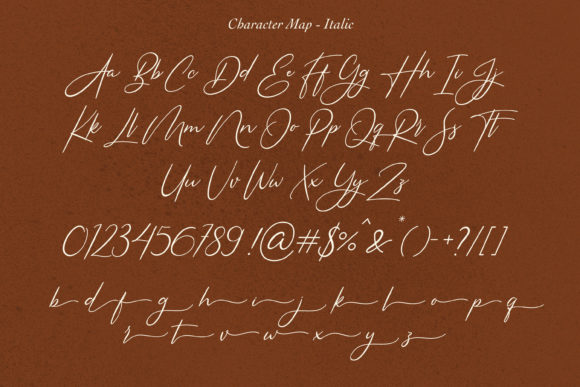 Character Map - Italic
Aa Bb Cc Dd Ee Ff Gg Hh Ii Jj
Kk Ll Mm Nn Oo Pp Qq Rr Ss Tt
Uu Vv Ww Xx Yy Zz
0123456789!@#$%^&*()-+?/[]
b d f g h i j k l o p q
r t v w x y z